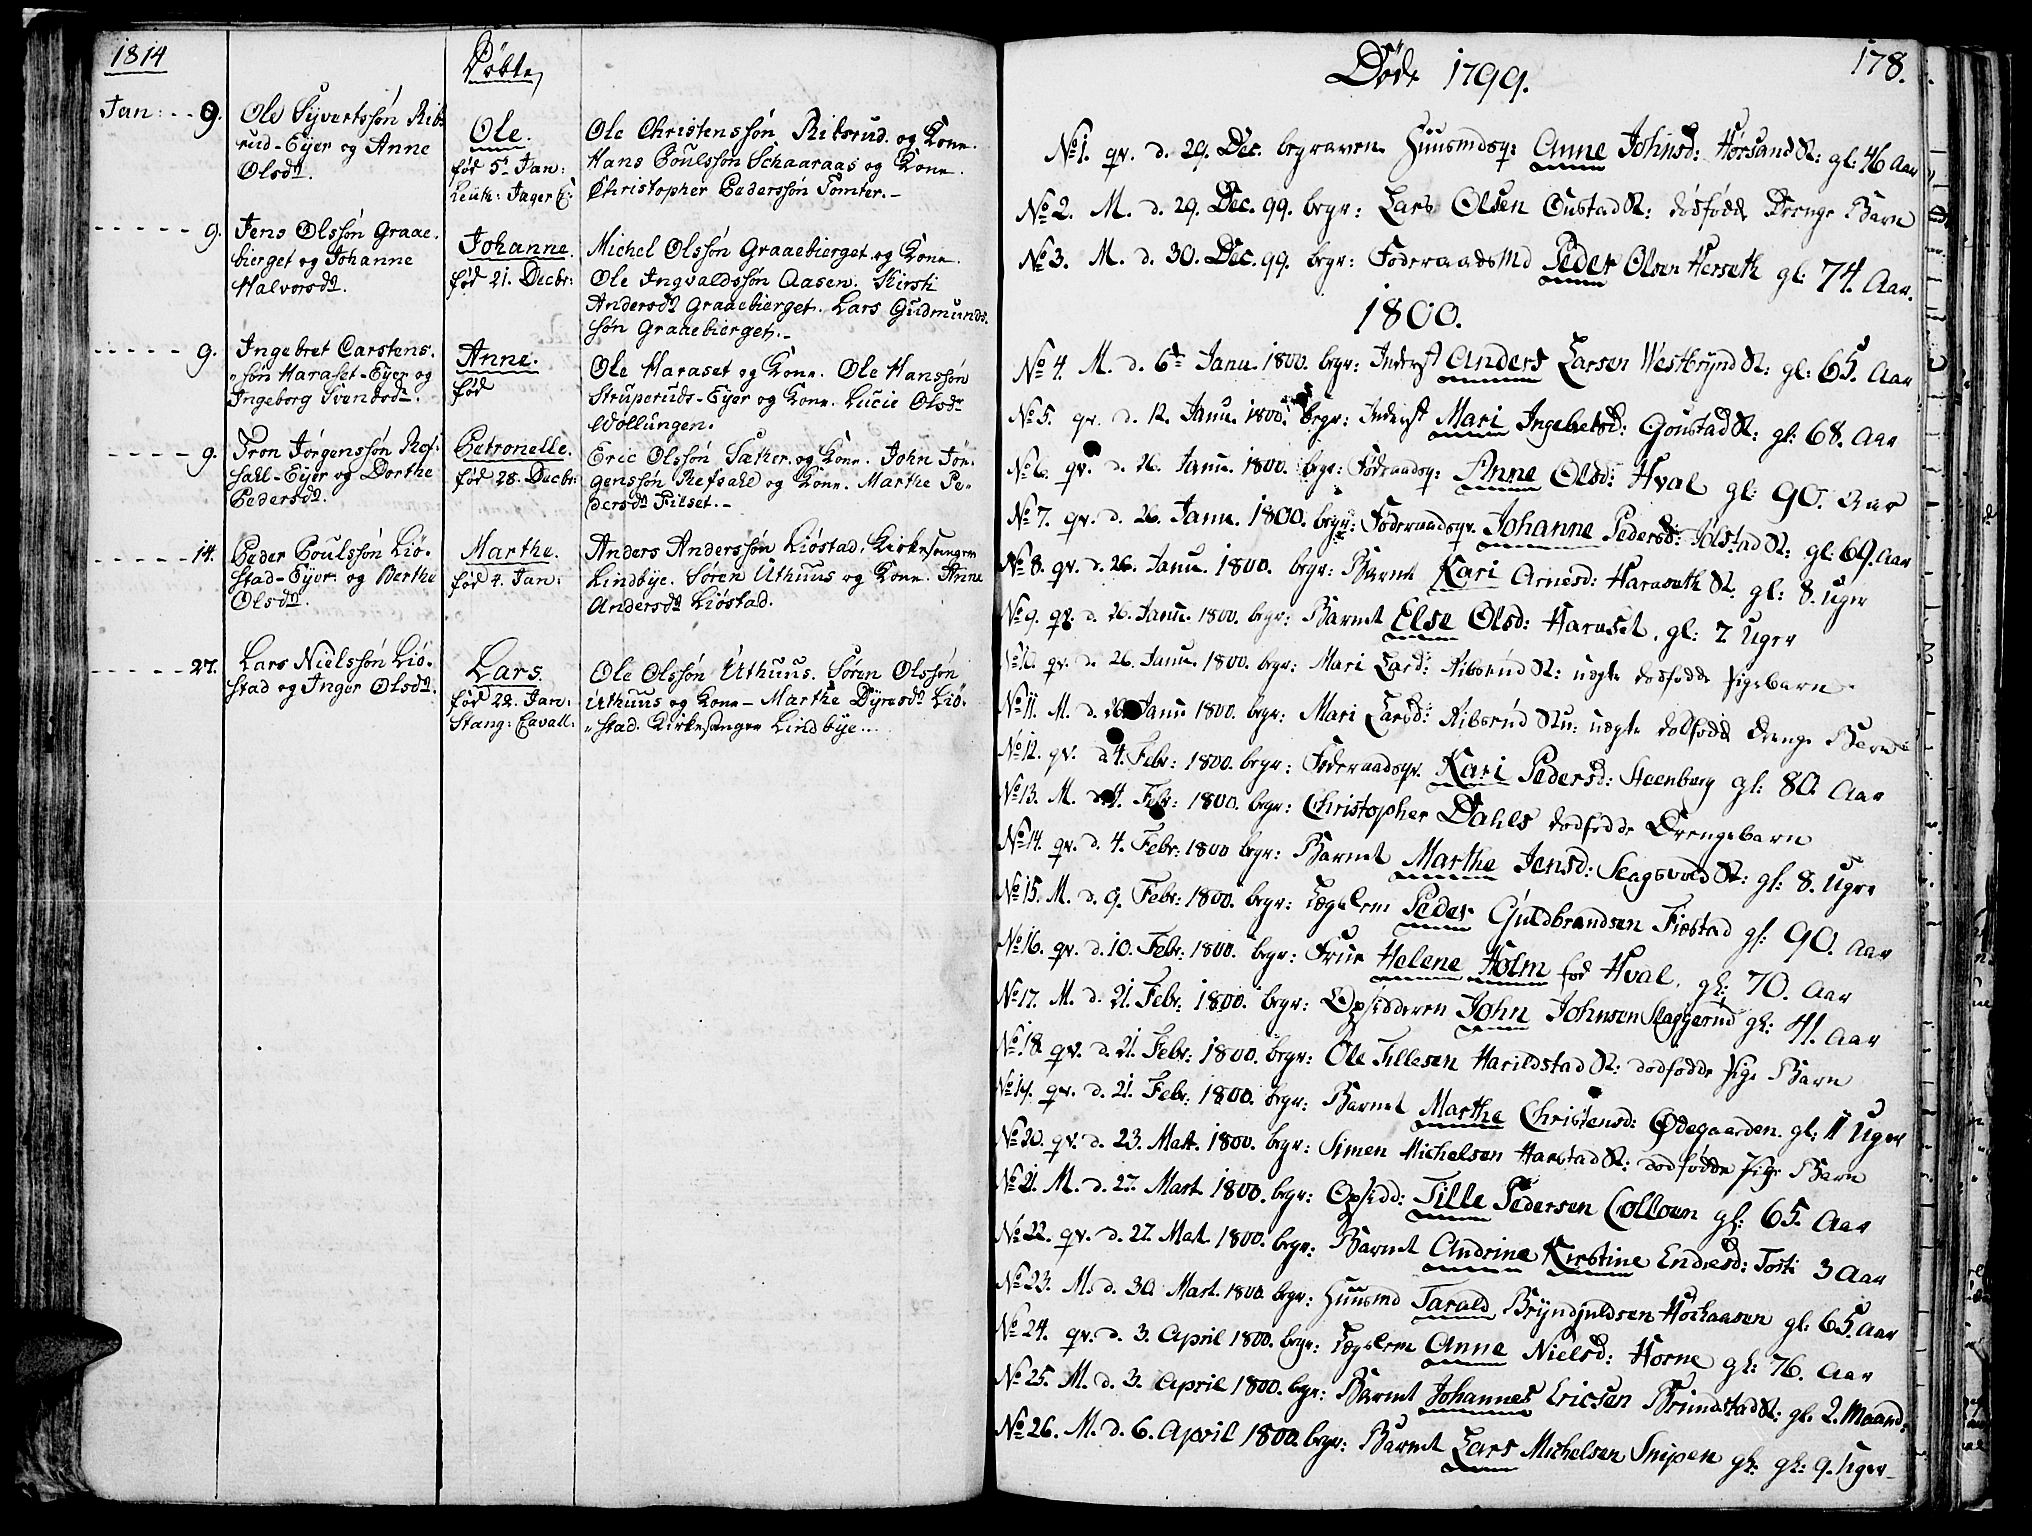 1814
Döbte
Jan: - - 9.
Ole Syvertssøn Ribs
rud-Eyer og Anne
Olsdr.
Ole.
fød 5. Jan:
Ole Christenssøn Ribsrud og Kone.
Hans Poulssøn Schaaraas og Kone.
Christopher Pederssøn Tomter.-
- - - - - 9.
Jens Olssøn Graae-
bierget og Johanne
Halvorsdr.
Johanne.
fød 21. Decbr:
Michel Olssøn Graaebierget og Kone.
Ole Ingvaldssøn Aasen. Kirsti
Andersdr Graaebierget. Lars Gudmunds-
søn Graaebierget.-
- - - - - 9.
Ingebret Carstens-
søn Haraset-Eyer og
Ingeborg Svendsdr.
Anne.
fød
Ole Haraset og Kone. Ole Hanssøn
Struperuds-Eyer og Kone. Lucie Olsdr
Wollungen.
- - - - - 9.
Tron Jørgenssøn Ref-
sahl-Eyer og Dorthe
Pedersdr.
Petronelle.
fød 28. Decbr:
Eric Olssøn Sæther og Kone. John Jør-
genssøn Refsahl og Kone. Marthe Pe-
dersdr Filset.-
- - - - - 14.
Peder Poulssøn Liø-
stad-Eyer og Berthe
Olsdr.
Marthe.
fød 4. Jan:
Anders Anderssøn Liøstad. Kirkesanger
Lindbye. Søren Uthuus og Kone. Anne
Andersdr Liøstad.
- - - - - 27.
Lars Nielssøn Liø-
stad og Inger Olsdr.
Lars.
fød 22. Jan:
Stang: Cavall:
Ole Olssøn Uthuus. Søren Olssøn
Uthuus og Kone - Marthe Dyresdr Liø-
stad. Kirkesanger Lindbye...
178.
Døde 1799.
No 1. qv. d. 29. Dec. begraven Huusmdsq: Anne Johnsd: Horsand St: gl: 46 Aar
No 2. M. d. 29. Dec. 99. begr: Lars Olsen Oustad St: dødfødd Drenge Barn
No 3. M. d. 30. Dec. 99. begr: Føderaadsmd Peder Olsen Herseth gl: 74. Aar.
1800.
No 4. M. d. 6te Janu. 1800. begr: Inderst Anders Larsen Westbrynd St: gl: 65. Aar
No 5. qv. d. 12. Janu. 1800. begr: Inderst Mari Ingebretsd: Goustad St: gl: 68. Aar
No 6. qv. d. 26. Janu. 1800. begr: Føderaadsq: Anne Olsd: Hval gl: 90. Aar
No 7. qv. d. 26. Janu. 1800. begr: Føderaadsqv. Johanne Pedersd: Jølstad St: gl: 69. Aar
No 8. qv. d. 26. Janu. 1800. begr: Barnet Kari Arnesd: Haraseth St. gl: 8. Uger
No 9. qv. d. 26. Janu. 1800. begr: Barnet Else Olsd: Haraset. gl: 7 Uger
qv. d. 26. Janu. 1800. begr: Mari Larsd: Ribsrud St: uegte dødfødde Pigebarn
No 11. M. d. 26. Janu 1800. begr: Mari Larsd: Ribsrud uegte dødfødd Drenge Barn
No 12. qv. d 4. Febr: 1800. begr: Føderaadsqv. Kari Pedersd: Steenberg gl: 80. Aar
No 13. M. d. 4. Febr: 1800. begr: Christopher Dahls dødfødde Drengebarn
No 14. qv. d. 4. Febr: 1800 begr: Barnet Marthe Jensd: Slagsvold St: gl: 8. Uger
No 15. M. d. 9. Febr: 1800. begr: Lægdslem Peder Guldbrandsen Fiæstad gl: 90. Aar
No 16. qv. d. 10. Febr: 1800. begr: Frue Helene Holm fød Hval. gl: 70. Aar
No 17. M. d. 21. Febr: 1800. begr: Opsidderen John Johnsen Slaggerud gl: 41. Aar
No 18. qv. d. 21. Febr: 1800. begr: Ole Tillesen Harildstad St: dødfødde Pige Barn
No 19. qv. d. 21. Febr: 1800. begr: Barnet Marthe Christensd: Ødegaarden. gl: 11 Uger
No 20. qv. d. 23. Mart. 1800. begr: Simen Michelsen Harstad St: dødfødde Pige Barn
No 21. M. d. 27. Mart. 1800. begr: Opsidd: Tille Pedersen Colloen gl: 65. Aar
No 22. qv. d. 27. Mart. 1800. begr: Barnet Andrine Kirstine Endresd: Tosti 3 Aar
No 23. M. d. 30. Mart. 1800 begr: Huusmd Tarald Bryndjuldsen Hokaasen gl: 65. Aar
No 24. qv. d. 3. April 1800. begr: Lægdslem Anne Nielsd: Horne gl: 76. Aar
No 25. M. d. 3. April 1800. begr: Barnet Johannes Ericsen Brundstad St: gl. 2. Maand:
No 26. M. d. 6. April 1800. begr: Barnet Lars Michelsen Snipen gl: gl: 9. Uger